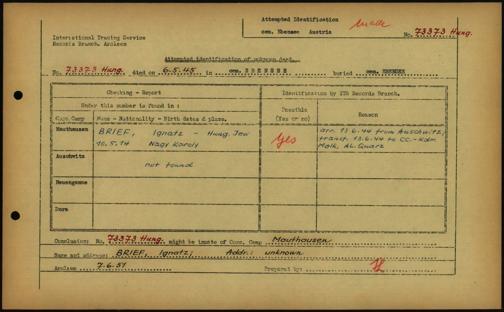 Attempted Identification
male
cem. Ebensee Austria
No. 73373 Hung.
International Tracing Service
Records Branch, Arolsen
Attempted identification of unknown dead.
No. 73373 Hung. died on 6.5.45 in cem. EBENSEE buried cem. EBENSEE
Checking - Report
Identification by ITS Records Branch.
Under this number is found in :
Possible
(Yes or no)
Reason
Conc. Camp
Name - Nationality - Birth dates & place.
Mauthausen
BRIEF, Ignatz - Hung. Jew
10.5.14 Nagy Karoly
Yes
arr. 13.6.44 from Auschwitz,
transf. 13.6.44 to CC.-Kdo.
Melk, AL. Quarz
Auschwitz
not found
Neuengamme
Dora
Conclusion: No. 73373 Hung. might be inmate of Conc. Camp Mauthausen
Name and address: BRIEF, Ignatz; Addr.: unknown
Arolsen 7.6.51 Prepared by: